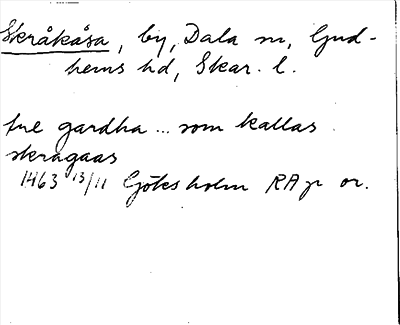 Skråkåsa, by, Dala sn, Gud-
hems hd, Skar. l.
fre gardha ... som kallas
skragaas
1463 13/11 Göksholm RAp or.